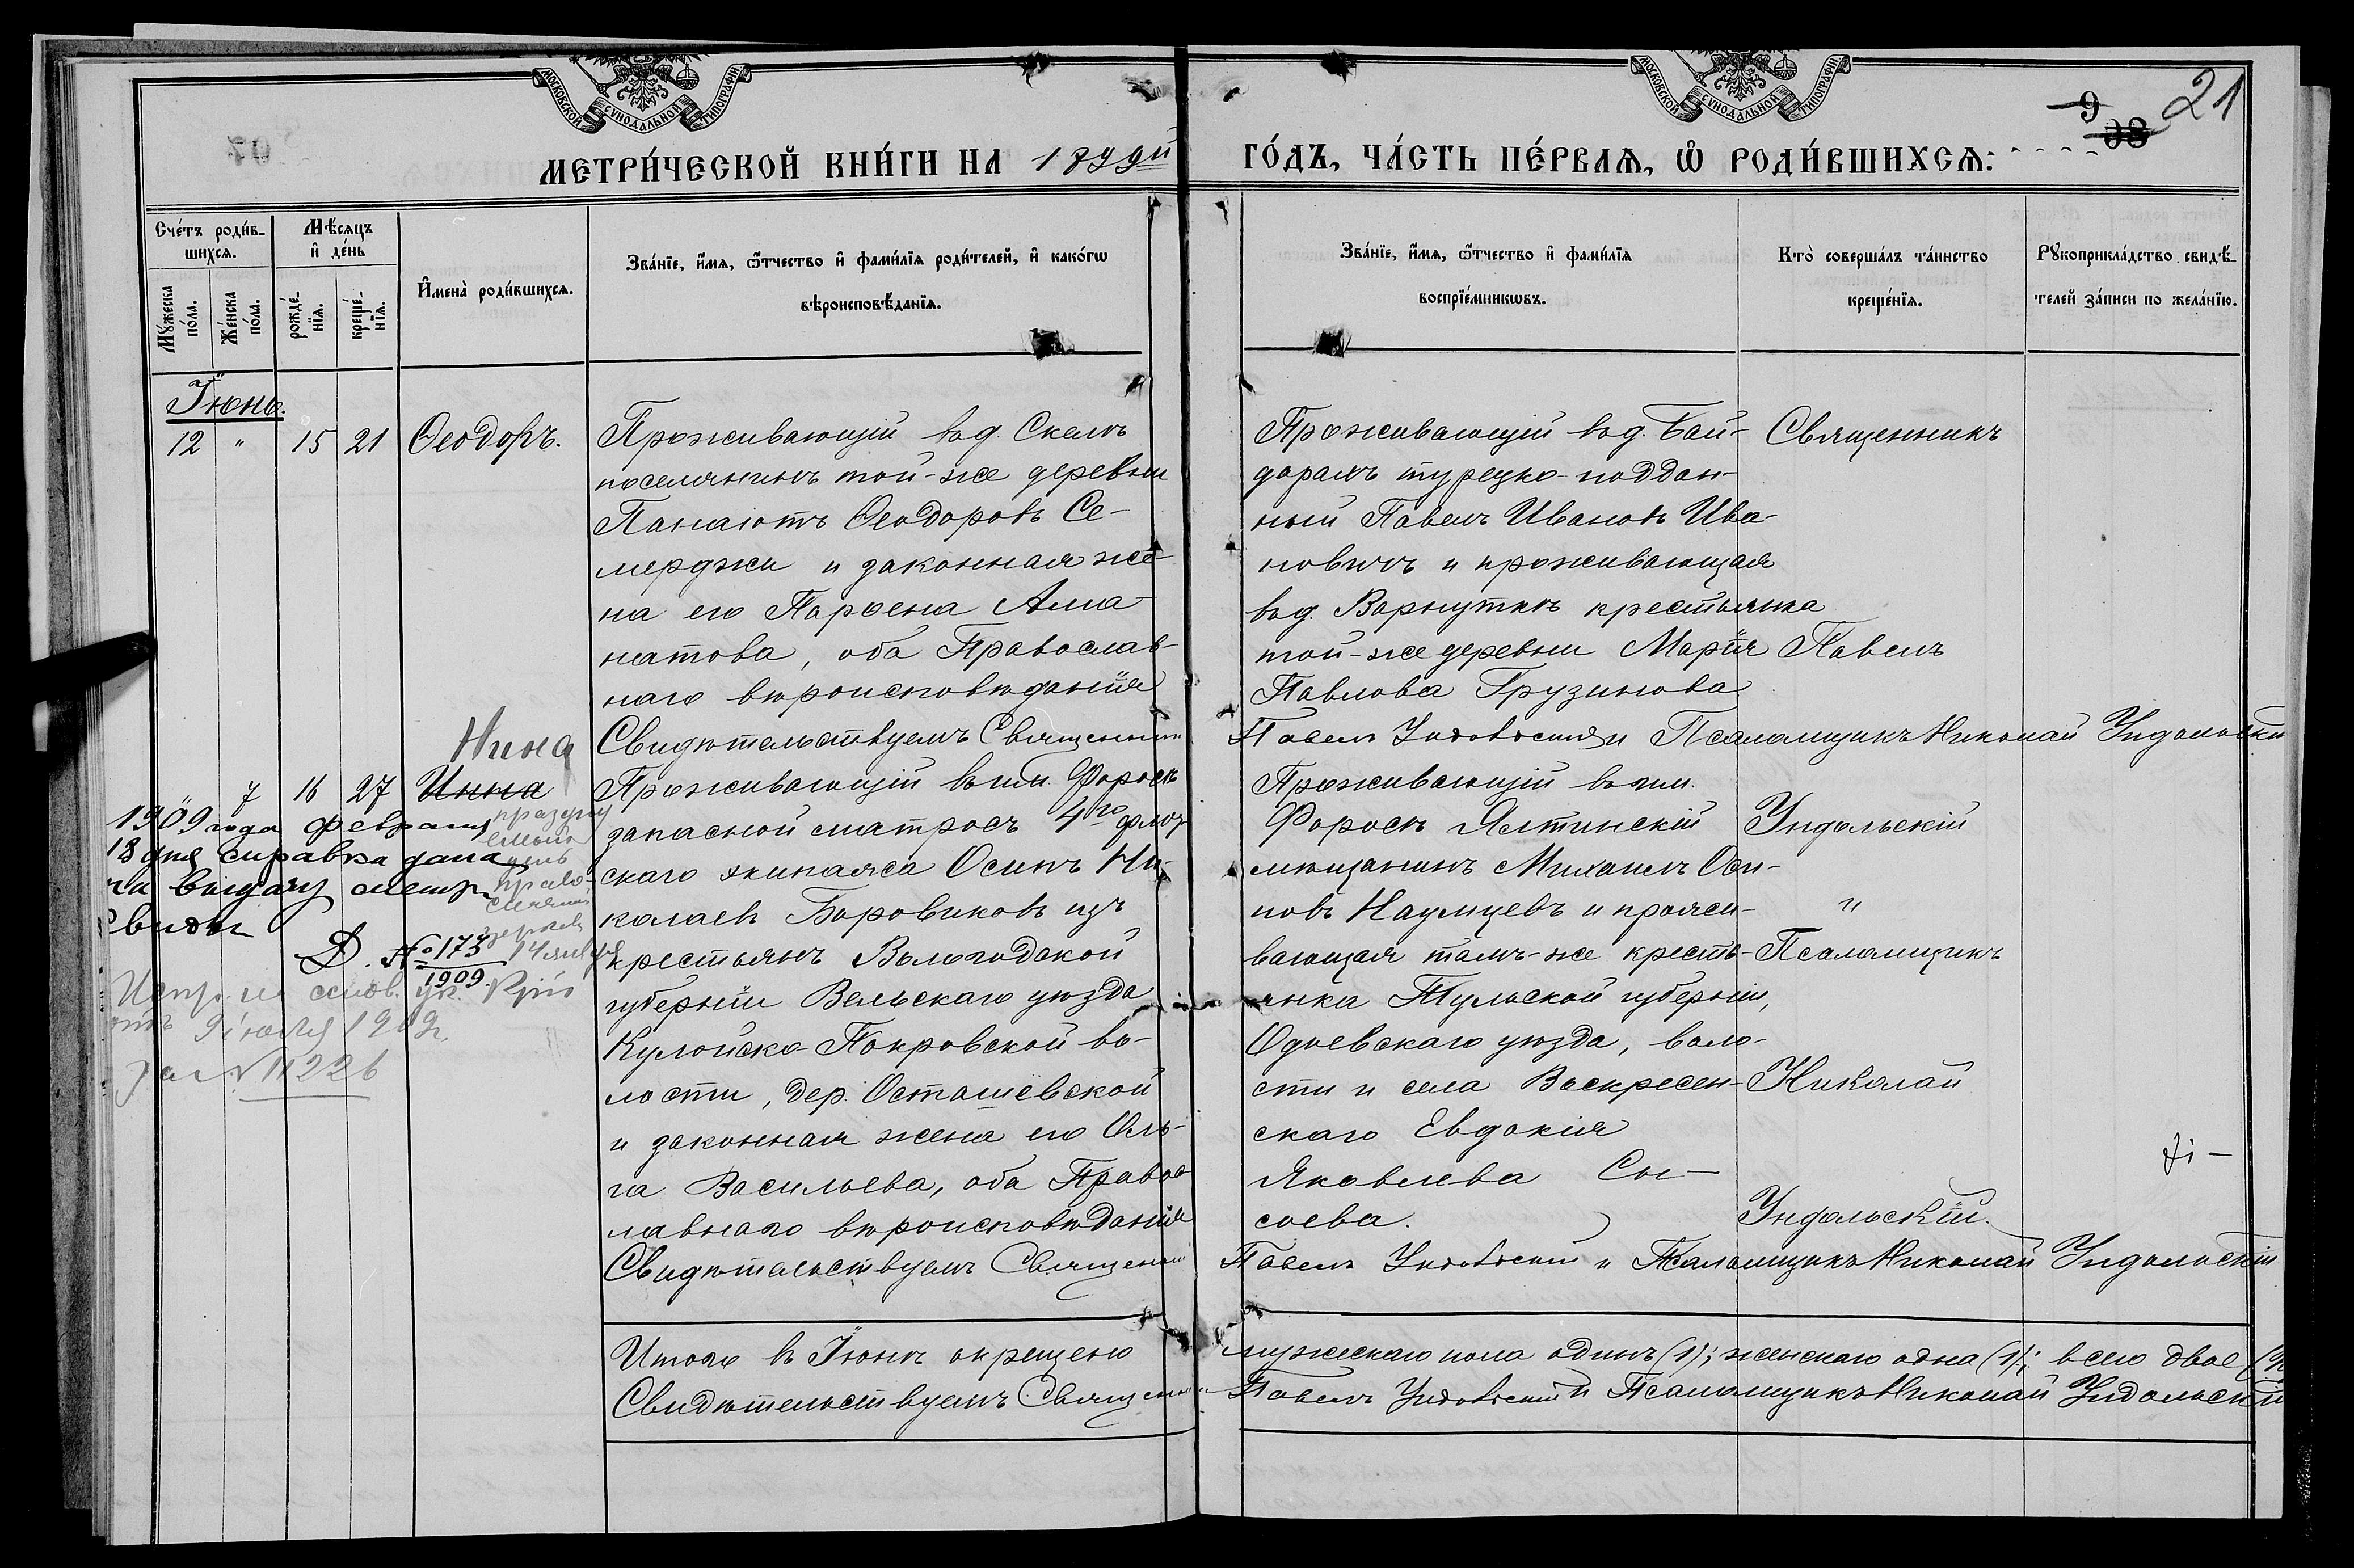 МОСКОВСКОЙ СѴНОДАЛЬНОЙ ТИПОГРАФІИ
МОСКОВСКОЙ СѴНОДАЛЬНОЙ ТИПОГРАФІИ
9 38 21
МЕТРИ́ЧЕСКОЙ КНИ́ГИ НА 1899й ГО́ДЪ, ЧА́СТЬ ПЕ́РВАѦ, Ѡ҆ РОДИ́ВШИХСѦ:
Сче́тъ роди́в-
шихсѧ.
Мꙋ́жеска по́ла.
Же́нска по́ла.
Мѣ́сѧцъ
и҆ де́нь
рожде́-
нїѧ.
креще́-
нїѧ.
И҆мена̀ роди́вшихсѧ.
Зва́нїе, и҆́мѧ, ѻ҆́тчество и҆ фами́лїѧ роди́телей, и҆ како́гѡ
вѣроисповѣ́данїѧ.
Зва́нїе, и҆́мѧ, ѻ҆́тчество и҆ фами́лїѧ
воспрїе́мникѡвъ.
Кто̀ соверша́лъ та́инство
креще́нїѧ.
Рꙋкоприкла́дство свидѣ́-
телей за́писи по жела́нїю.
Іюнь.
12 " 15 21 Ѳеодоръ.
Проживающій въ д. Скеляхъ
поселянинъ той-же деревни
Панаіотъ Ѳеодоровъ Се-
мерджи и законная же-
на его Парѳена Ама-
натова, оба Православ-
наго вѣроисповѣданія
Свидѣтельствуемъ Священникъ
Проживающій въ д. Бай-
дарахъ турецко-поддан-
ный Павелъ Ивановъ Ива-
новичъ и проживающая
въ д. Варнуткѣ крестьянка
той-же деревни Марія
Павлова Грузинова
Священникъ
Павелъ
Павелъ Ундольскій и Псаломщикъ Николай Ундольскій
Нина
7 16 27 Инна
Проживающій въ им. Форосъ
запасной матросъ 4го флот-
скаго экипажа Осипъ Ни-
колаевъ Боровиковъ изъ
крестьянъ Вологодской
губерніи Вельскаго уѣзда
Кулойско-Покровской во-
лости, дер. Осташевской
и законная жена его Оль-
га Васильева, оба Правос-
лавнаго вѣроисповѣданія
Свидѣтельствуемъ Священникъ
Проживающій въ им.
Форосъ Ялтинскій
мѣщанинъ Михаилъ Оси-
повъ Наумцевъ и прожи-
вающая тамъ-же кресть-
янка Тульской губерніи,
Одоевскаго уѣзда, воло-
сти и села Воскресен-
скаго Евдокія
Яковлева Сы-
соева.
Ундольскій
"
Псаломщикъ
Николай
Ундольскій.
Павелъ Ундольскій и Псаломщикъ Николай Ундольскій
1909 года февраля
18 дня справка дана
на выдачу метр.
свидѣт
Д. № 173
1909.
14 января
Испр. на основ. ук.
отъ 9 іюля 1909 г.
за № 11226
Итого въ Іюнѣ окрещено мужескаго пола одинъ (1); женскаго одна (1); всего двое (2)
Свидѣтельствуемъ Священникъ Павелъ Ундольскій и Псаломщикъ Николай Ундольскій